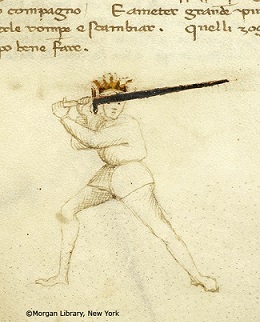 compagno E a meter grande pu
erle rompe e scambiar. quelli zog
po bene fare.
©Morgan Library, New York